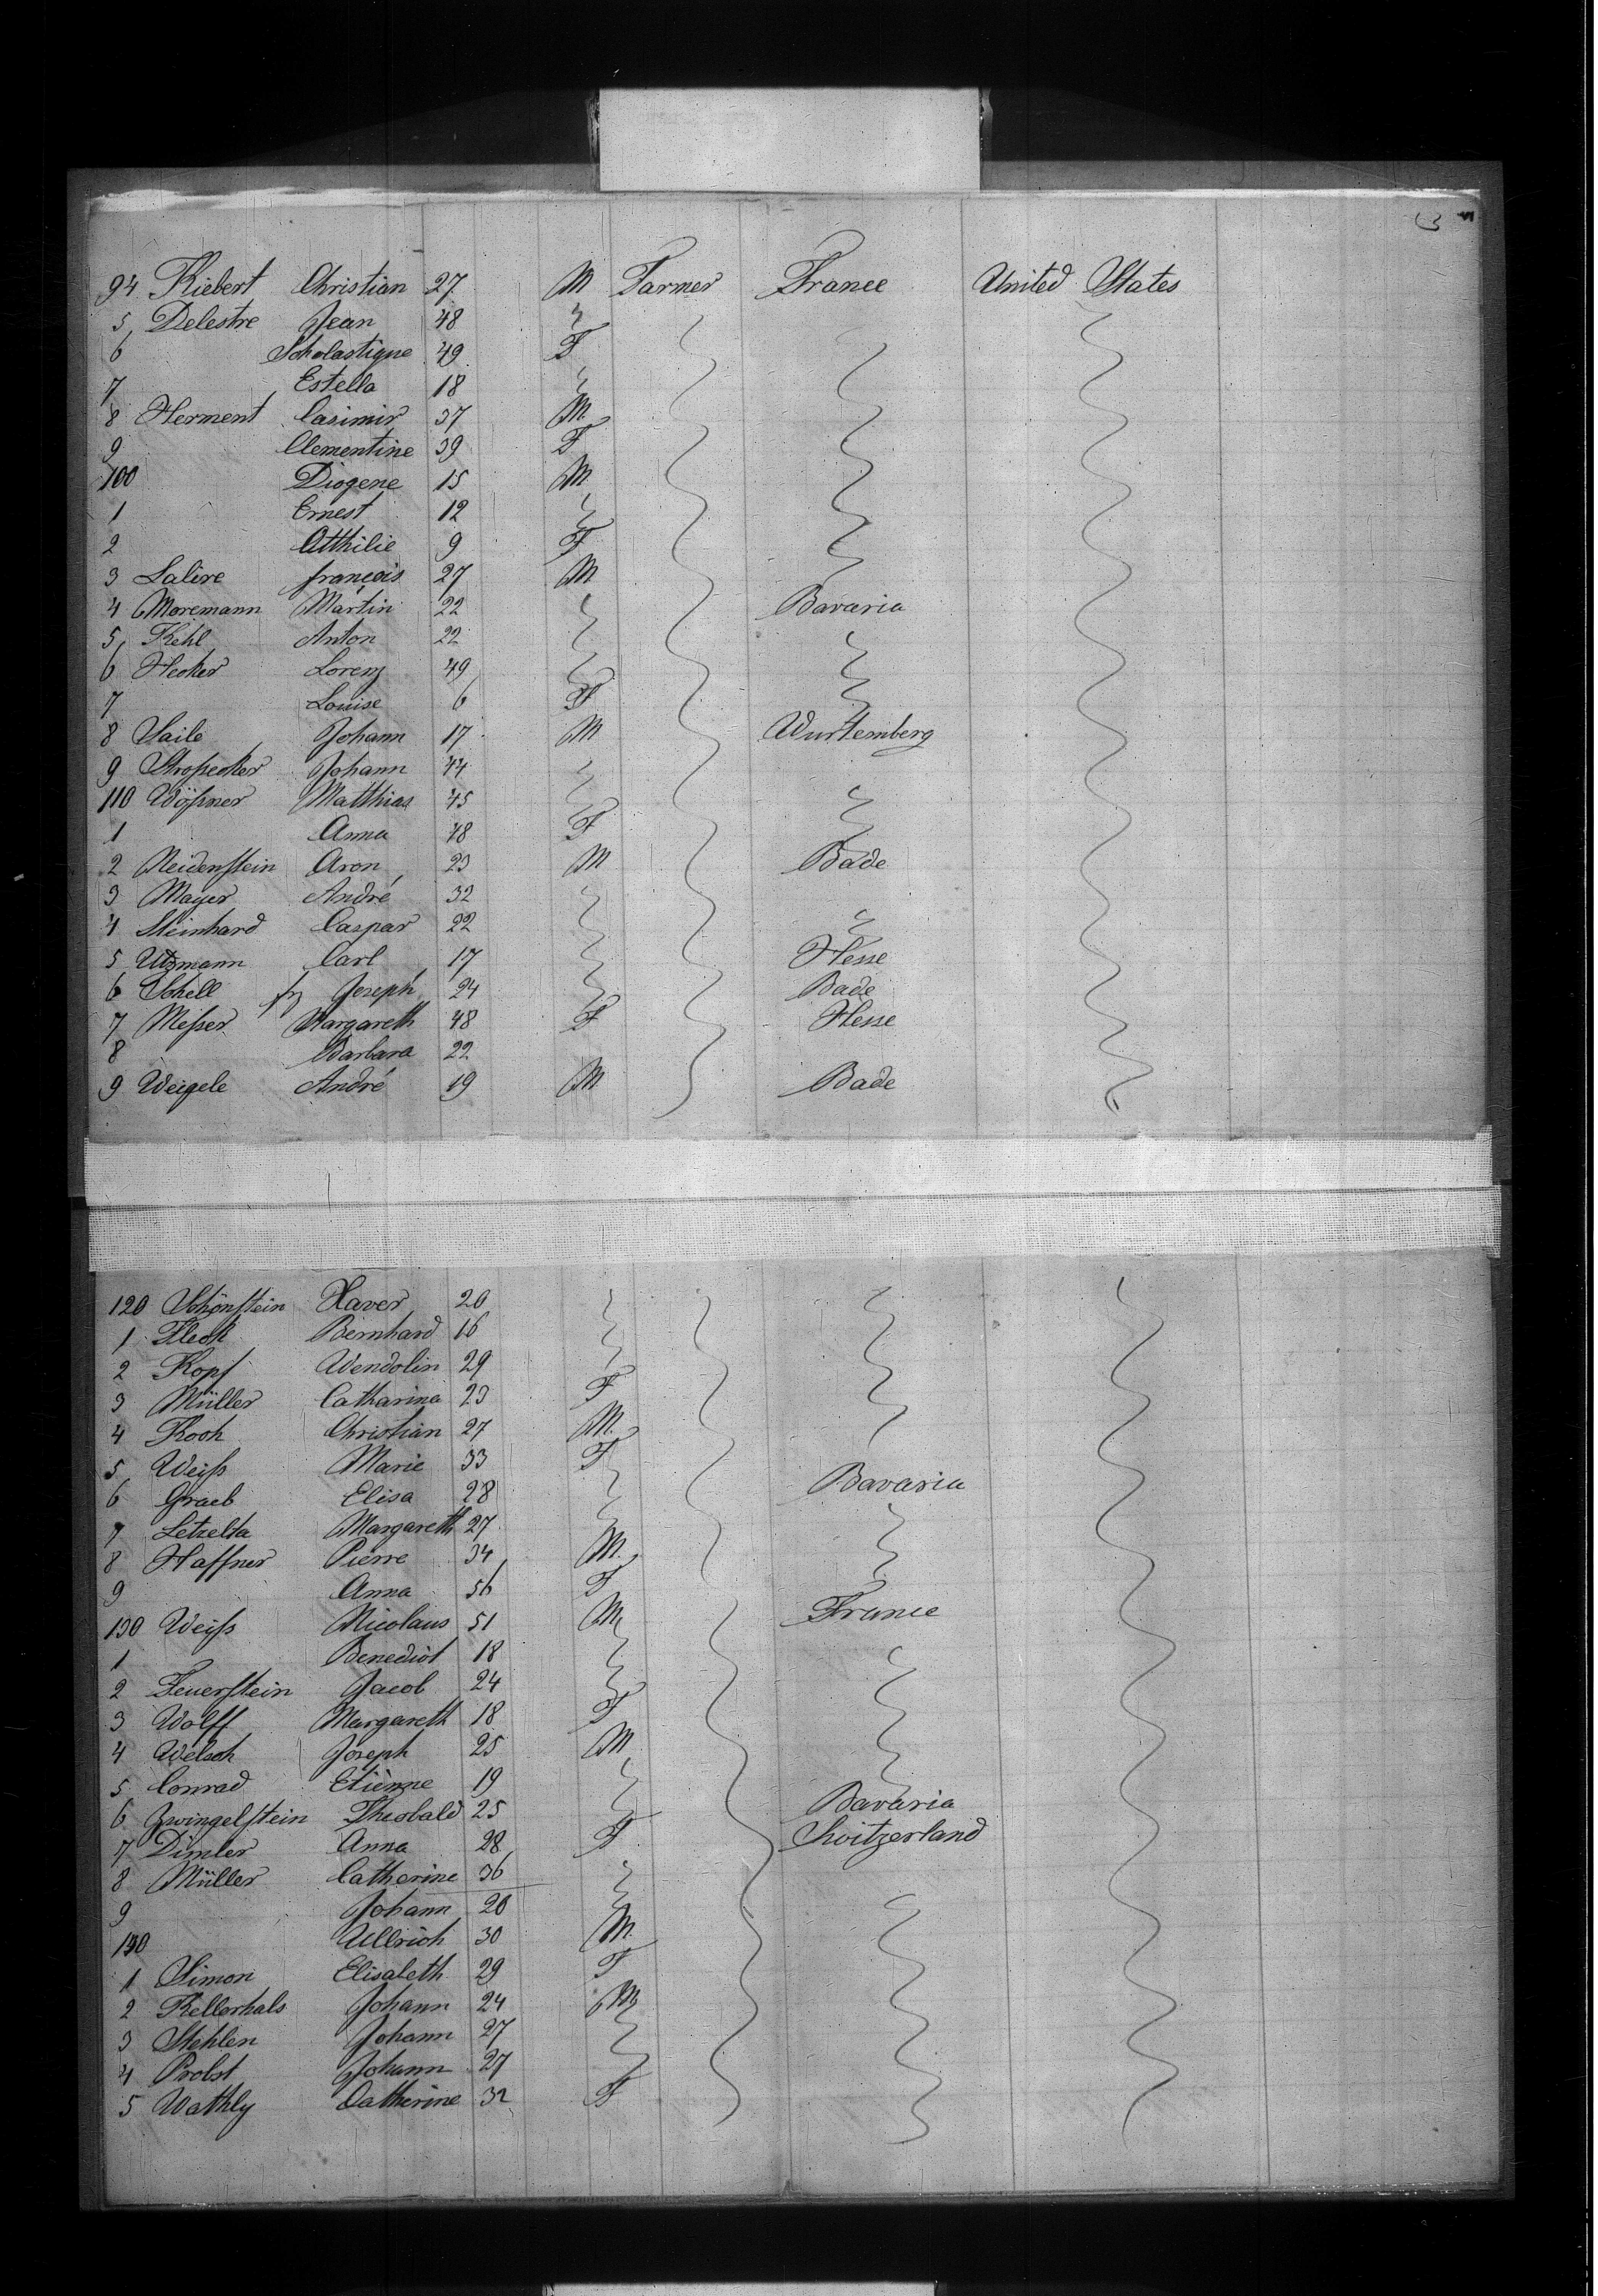 94 Kiebert Christian 27 M Farmer France United States
5 Delestre Jean 48
6 Scholastique 49 F
7 Estella 18
8 Herment Casimir 37 M
9 Clementine 39 F
100 Diogene 15 M
1 Ernest 12
2 Otthilie 9 F
3 Lalire françois 27 M
4 Moremann Martin 22 Bavaria
5 Kehl Anton 22
6 Hecker Lorenz 49
7 Louise 6 F
8 Saile Johann 17 M Wurtemberg
9 Stroßecker Johann 44
110 Wößner Matthias 45
1 Anna 48 F
2 Neidenstein Aron 23 M Bade
3 Mayer André 32
4 Steinhard Caspar 22
5 Utzmann Carl 17 Hesse
6 Schell fz Joseph 24 Bade
7 Meßer Margareth 48 F Hesse
8 Barbara 22
9 Weigele André 19 M Bade
120 Schönstein Xaver 20
1 Fleck Bernhard 16
2 Kopf Wendolin 29
3 Müller Catharina 23 F
4 Koch Christian 27 M
5 Weiß Marie 33 F
6 Graeb Elisa 28 Bavaria
7 Letzelta Margareth 27
8 Haffner Pierre 34 M
9 Anna 56 F
130 Weiß Nicolaus 51 M France
1 Benedict 18
2 Feuerstein Jacob 24
3 Wolff Margareth 18 F
4 Welsch Joseph 25 M
5 Conrad Etienne 19
6 Zwingelstein Theobald 25 Bavaria
7 Dimler Anna 28 F Switzerland
8 Müller Catherine 36
9 Johann 20
140 Ullrich 30 M
1 Simon Elisabeth 29 F
2 Kellerhals Johann 24 M
3 Stehlen Johann 27
4 Probst Johann 27
5 Wathly Catherine 32 F